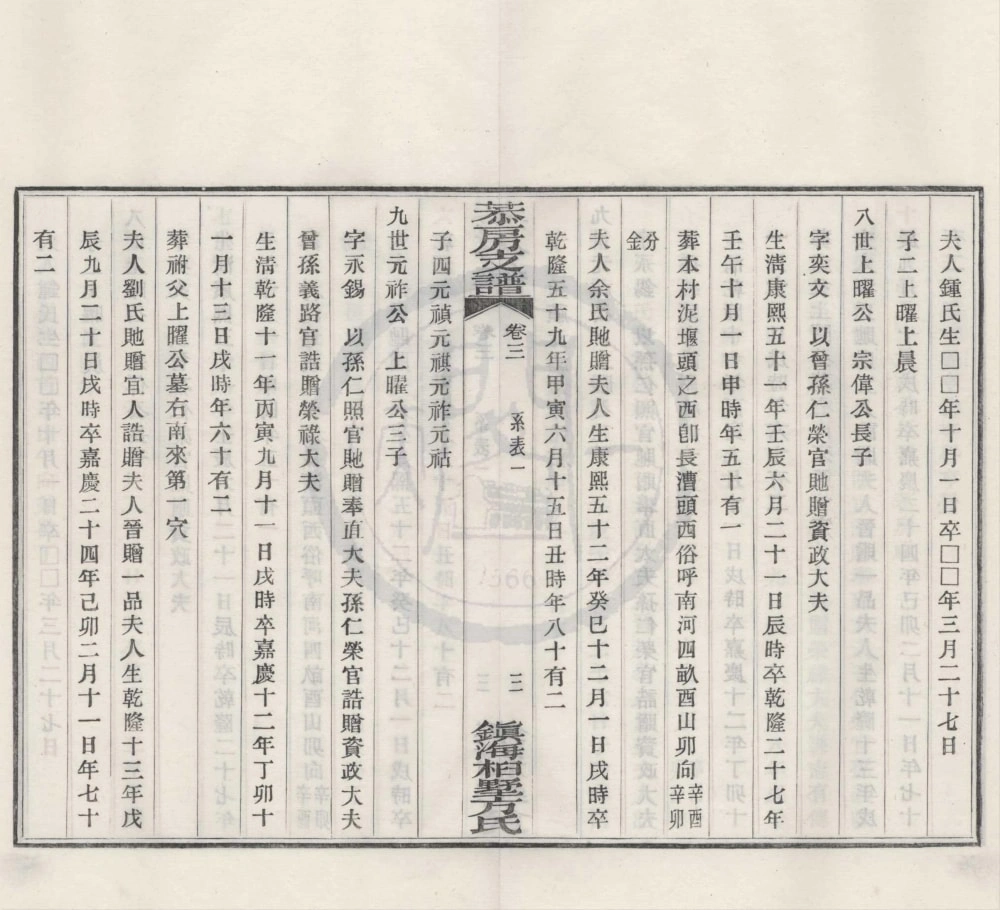 夫人鍾氏生□□年十月一日卒□□年三月二十七日
子二上曜上晨
八世上曜公 宗偉公長子
字奕文 以曾孫仁榮官貤贈資政大夫
生清康熙五十一年壬辰六月二十一日辰時卒乾隆二十七年
壬午十月十日申時年五十有一
葬本村泥堰頭之西卽長漕頭西俗呼南河四畝酉山卯向辛酉辛卯
分金
夫人余氏貤贈夫人生康熙五十二年癸巳十二月一日戌時卒
乾隆五十九年甲寅六月十五日丑時年八十有二
恭房支譜 卷三 系表一 三 鎮海柏墅方氏
子四元禎元祺元祚元祜
九世元祚公 上曜公三子
字永錫 以孫仁照官貤贈奉直大夫孫仁榮官誥贈資政大夫
曾孫義路官誥贈榮祿大夫
生清乾隆十一年丙寅九月十一日戌時卒嘉慶十二年丁卯十
一月十三日戌時年六十有二
葬祔父上曜公墓右南來第一穴
夫人劉氏貤贈宜人誥贈夫人晉贈一品夫人生乾隆十三年戊
辰九月二十日戌時卒嘉慶二十四年己卯二月十一日年七十
有二